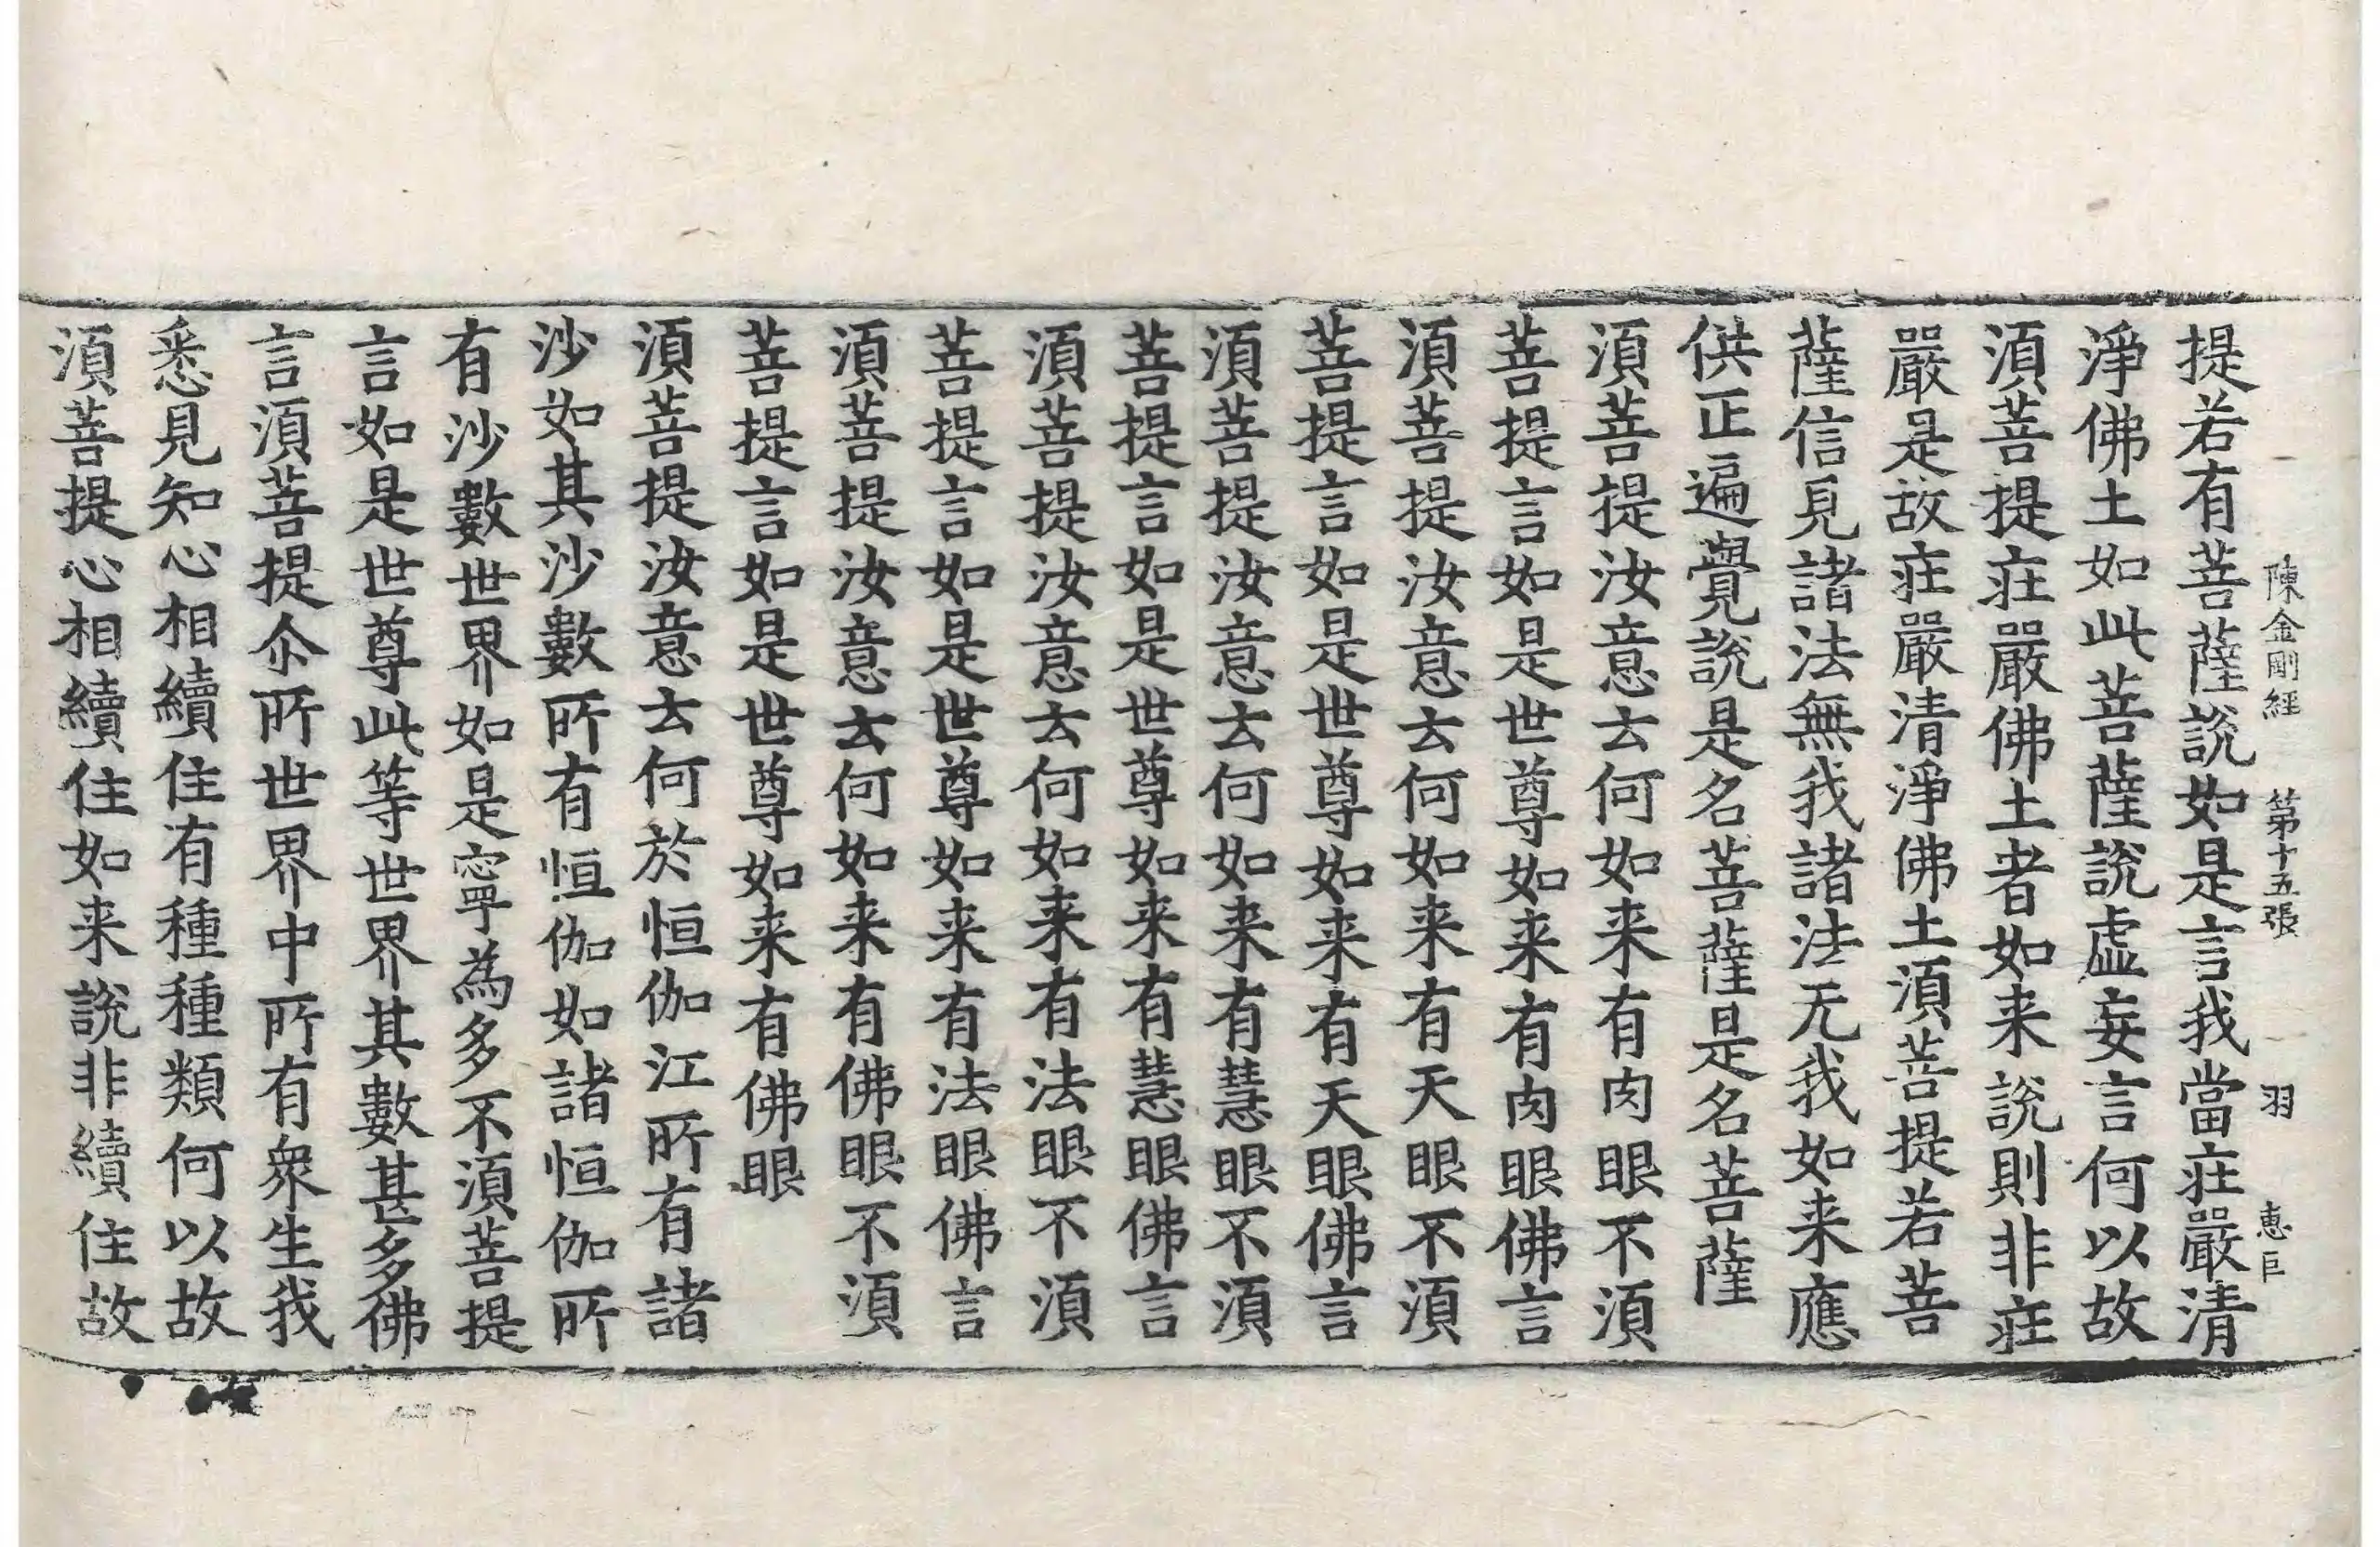 陳金剛經 第十五張 羽 惠巨
提若有菩薩說如是言我當莊嚴清
淨佛土如此菩薩說虛妄言何以故
湏菩提莊嚴佛土者如来說則非莊
嚴是故莊嚴清淨佛土湏菩提若菩
薩信見諸法無我諸法无我如来應
供正遍覺說是名菩薩是名菩薩
湏菩提汝意云何如来有肉眼不湏
菩提言如是世尊如来有肉眼佛言
湏菩提汝意云何如来有天眼不湏
菩提言如是世尊如来有天眼佛言
湏菩提汝意云何如来有慧眼不湏
菩提言如是世尊如来有慧眼佛言
湏菩提汝意云何如来有法眼不湏
菩提言如是世尊如来有法眼佛言
湏菩提汝意云何如来有佛眼不湏
菩提言如是世尊如来有佛眼
湏菩提汝意云何於恒伽江所有諸
沙如其沙數所有恒伽如諸恒伽所
有沙數世界如是寧為多不湏菩提
言如是世尊此等世界其數甚多佛
言湏菩提尒所世界中所有衆生我
悉見知心相續住有種種類何以故
湏菩提心相續住如来說非續住故